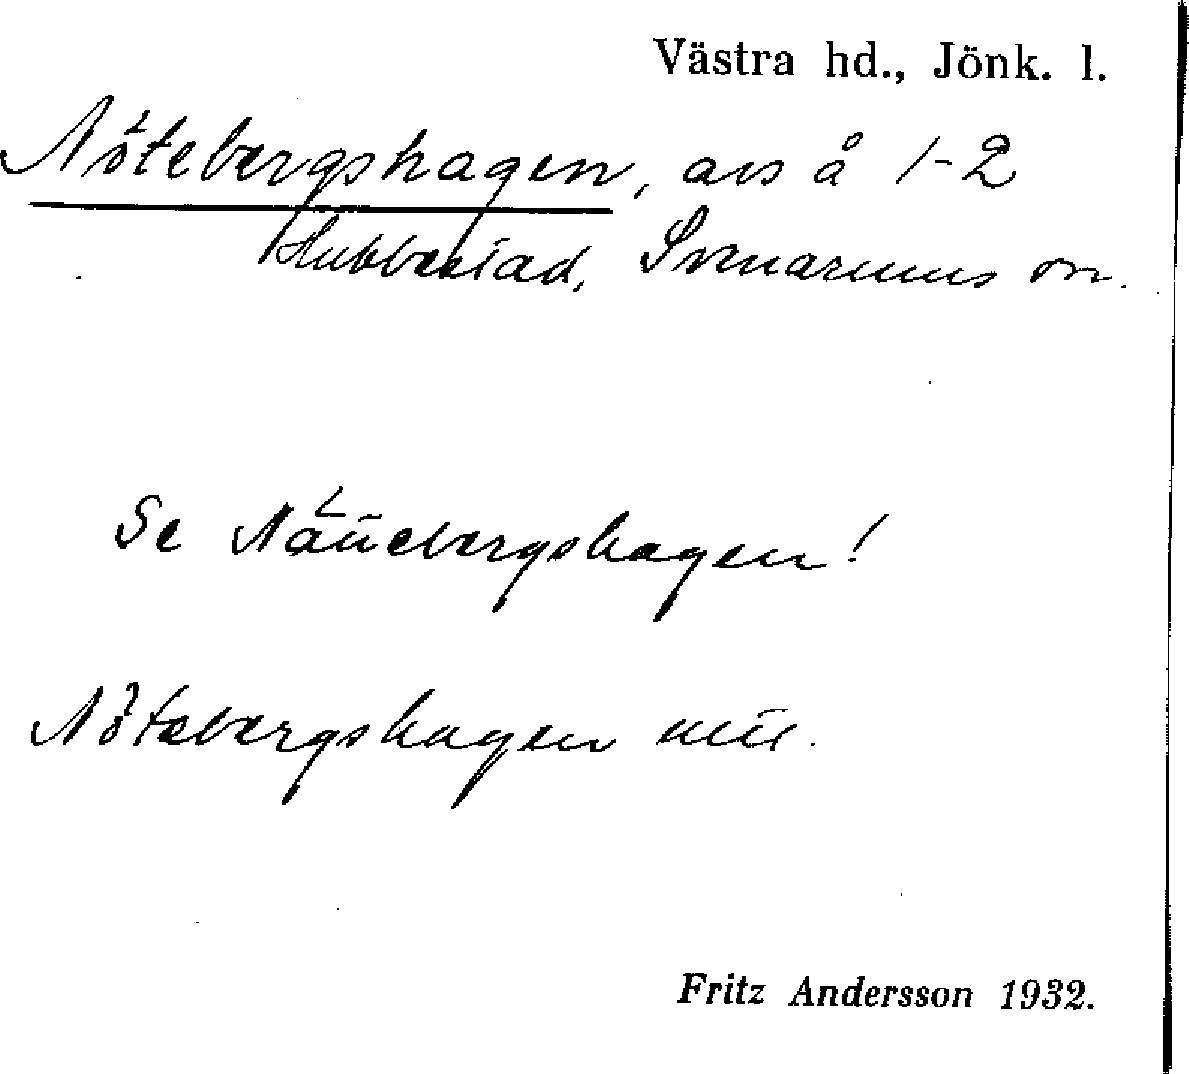 Västra hd., Jönk. l.
Nötebergshagen, avs å 1-2
Hubbestad, Svenarums sn.
Se Nättebergshagen!
Nötebergshagen
Fritz Andersson 1932.